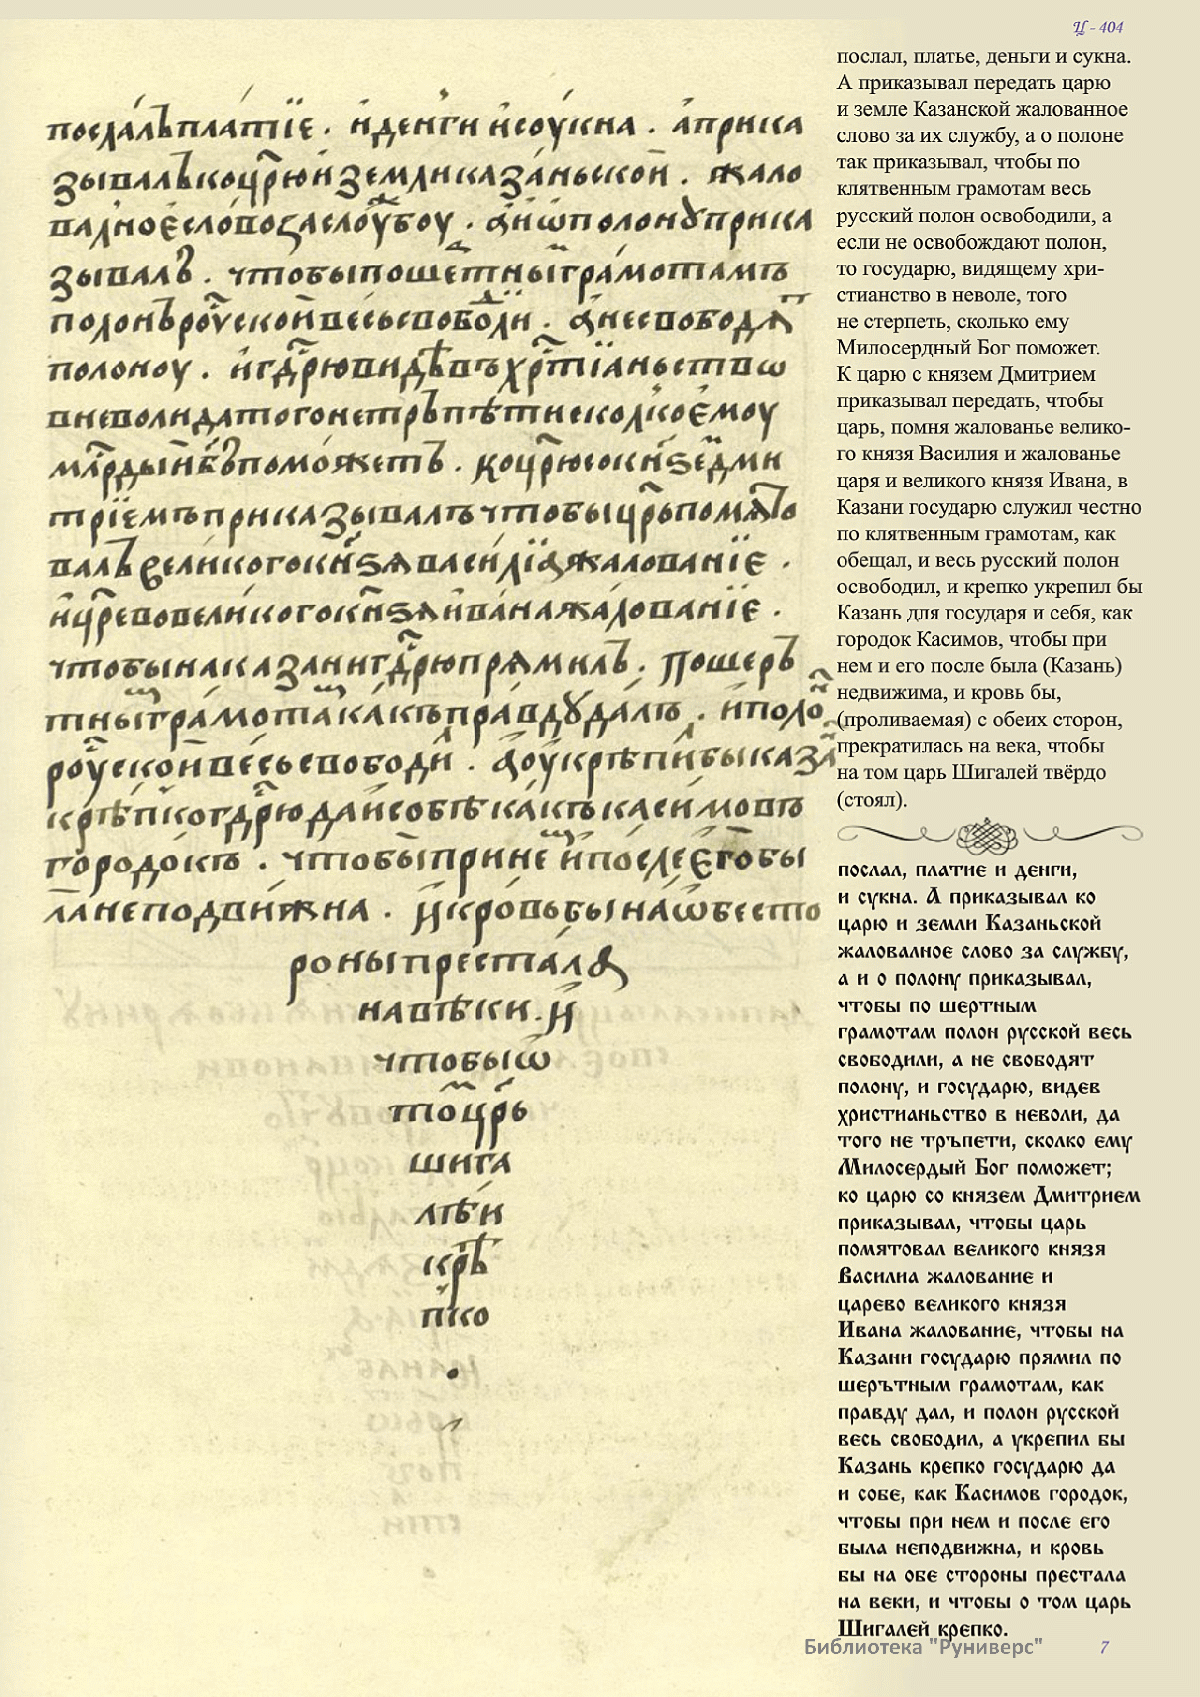 Ц - 404
послалъ платїе . и денги и соукна . а прика
зывалъ ко црю и земли казаньской . жало
валное слово за слоубоу . а и ѡ полонꙋ прика
зывалъ . чтобы по шетны грамотамъ
полонъ роускои весь свободи . а не свободѧт
полоноу . и гдрю видѣвъ хртїаньство
в неволи да того не трьпѣти сколко емоу
млрдыи бгъ поможетъ . ко црю со кнѕе дми
трїемъ приказывалъ чтобы црь помѧто
валъ великого кнѕѧ василїа жалованїе .
и црево великого кнѕѧ ивана жалованїе .
чтобы на казани гдрю прѧмилъ . по шеръ
тны грамота какъ правдꙋ далъ . и поло
роускои весь свободи . а оукрѣпи бы каза
крѣпко гдрю да и собѣ какъ касимовъ
городокъ . чтобы при не и после его бы
ла неподвижна . и кровь бы на ѡбе сто
роны престала
на вѣки . и
чтобы ѡ
то црь
шига
лѣи
крѣ
пко
послал, платье, деньги и сукна.
А приказывал передать царю
и земле Казанской жалованное
слово за их службу, а о полоне
так приказывал, чтобы по
клятвенным грамотам весь
русский полон освободили, а
если не освобождают полон,
то государю, видящему хри-
стианство в неволе, того
не стерпеть, сколько ему
Милосердный Бог поможет.
К царю с князем Дмитрием
приказывал передать, чтобы
царь, помня жалованье велико-
го князя Василия и жалованье
царя и великого князя Ивана, в
Казани государю служил честно
по клятвенным грамотам, как
обещал, и весь русский полон
освободил, и крепко укрепил бы
Казань для государя и себя, как
городок Касимов, чтобы при
нем и его после была (Казань)
недвижима, и кровь бы,
(проливаемая) с обеих сторон,
прекратилась на века, чтобы
на том царь Шигалей твёрдо
(стоял).
послал, платие и денги,
и сукна. А приказывал ко
царю и земли Казаньской
жаловалное слово за службу,
а и о полону приказывал,
чтобы по шертным
грамотам полон русской весь
свободили, а не свободят
полону, и государю, видев
христианьство в неволи, да
того не тръпети, сколко ему
Милосердый Бог поможет;
ко царю со князем Дмитрием
приказывал, чтобы царь
помятовал великого князя
Василиа жалование и
царево великого князя
Ивана жалование, чтобы на
Казани государю прямил по
шерътным грамотам, как
правду дал, и полон русской
весь свободил, а укрепил бы
Казань крепко государю да
и собе, как Касимов городок,
чтобы при нем и после его
была неподвижна, и кровь
бы на обе стороны престала
на веки, и чтобы о том царь
Шигалей крепко.
Библиотека "Руниверс"
7